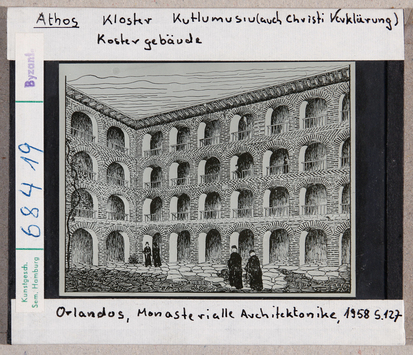 Athos Kloster Kutlumusiu (auch Christi Verklärung)
Kostergebäude
Byzant.
68419
Kunstgesch.
Sem. Hamburg
Orlandos, Monasterialle Architektonike, 1958 S. 127